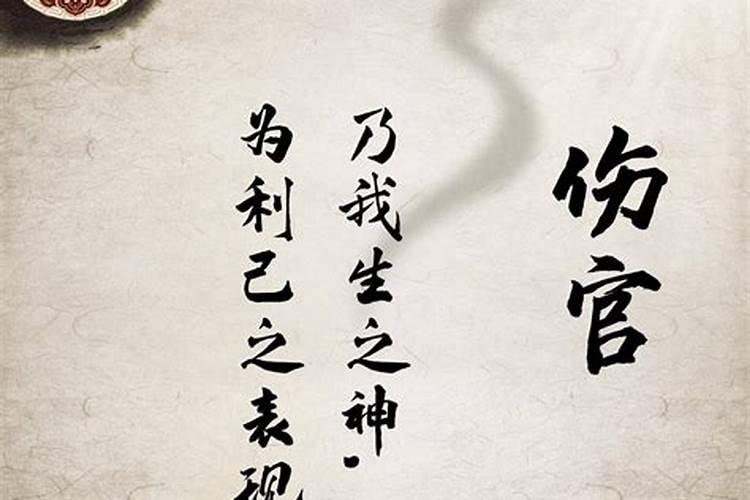 伤官
乃我生之神.
为利己之表现